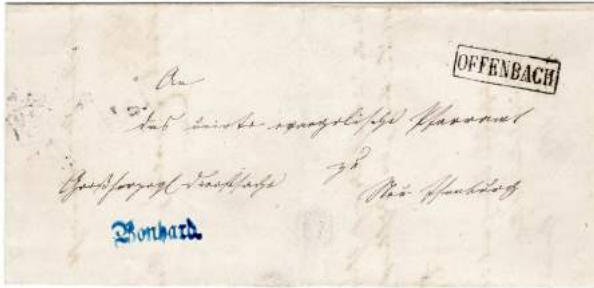 OFFENBACH
An
das unirte evangelische Pfarramt
zu
Großherzogl Dienstsache
Neu Isenburg
Bonhard.